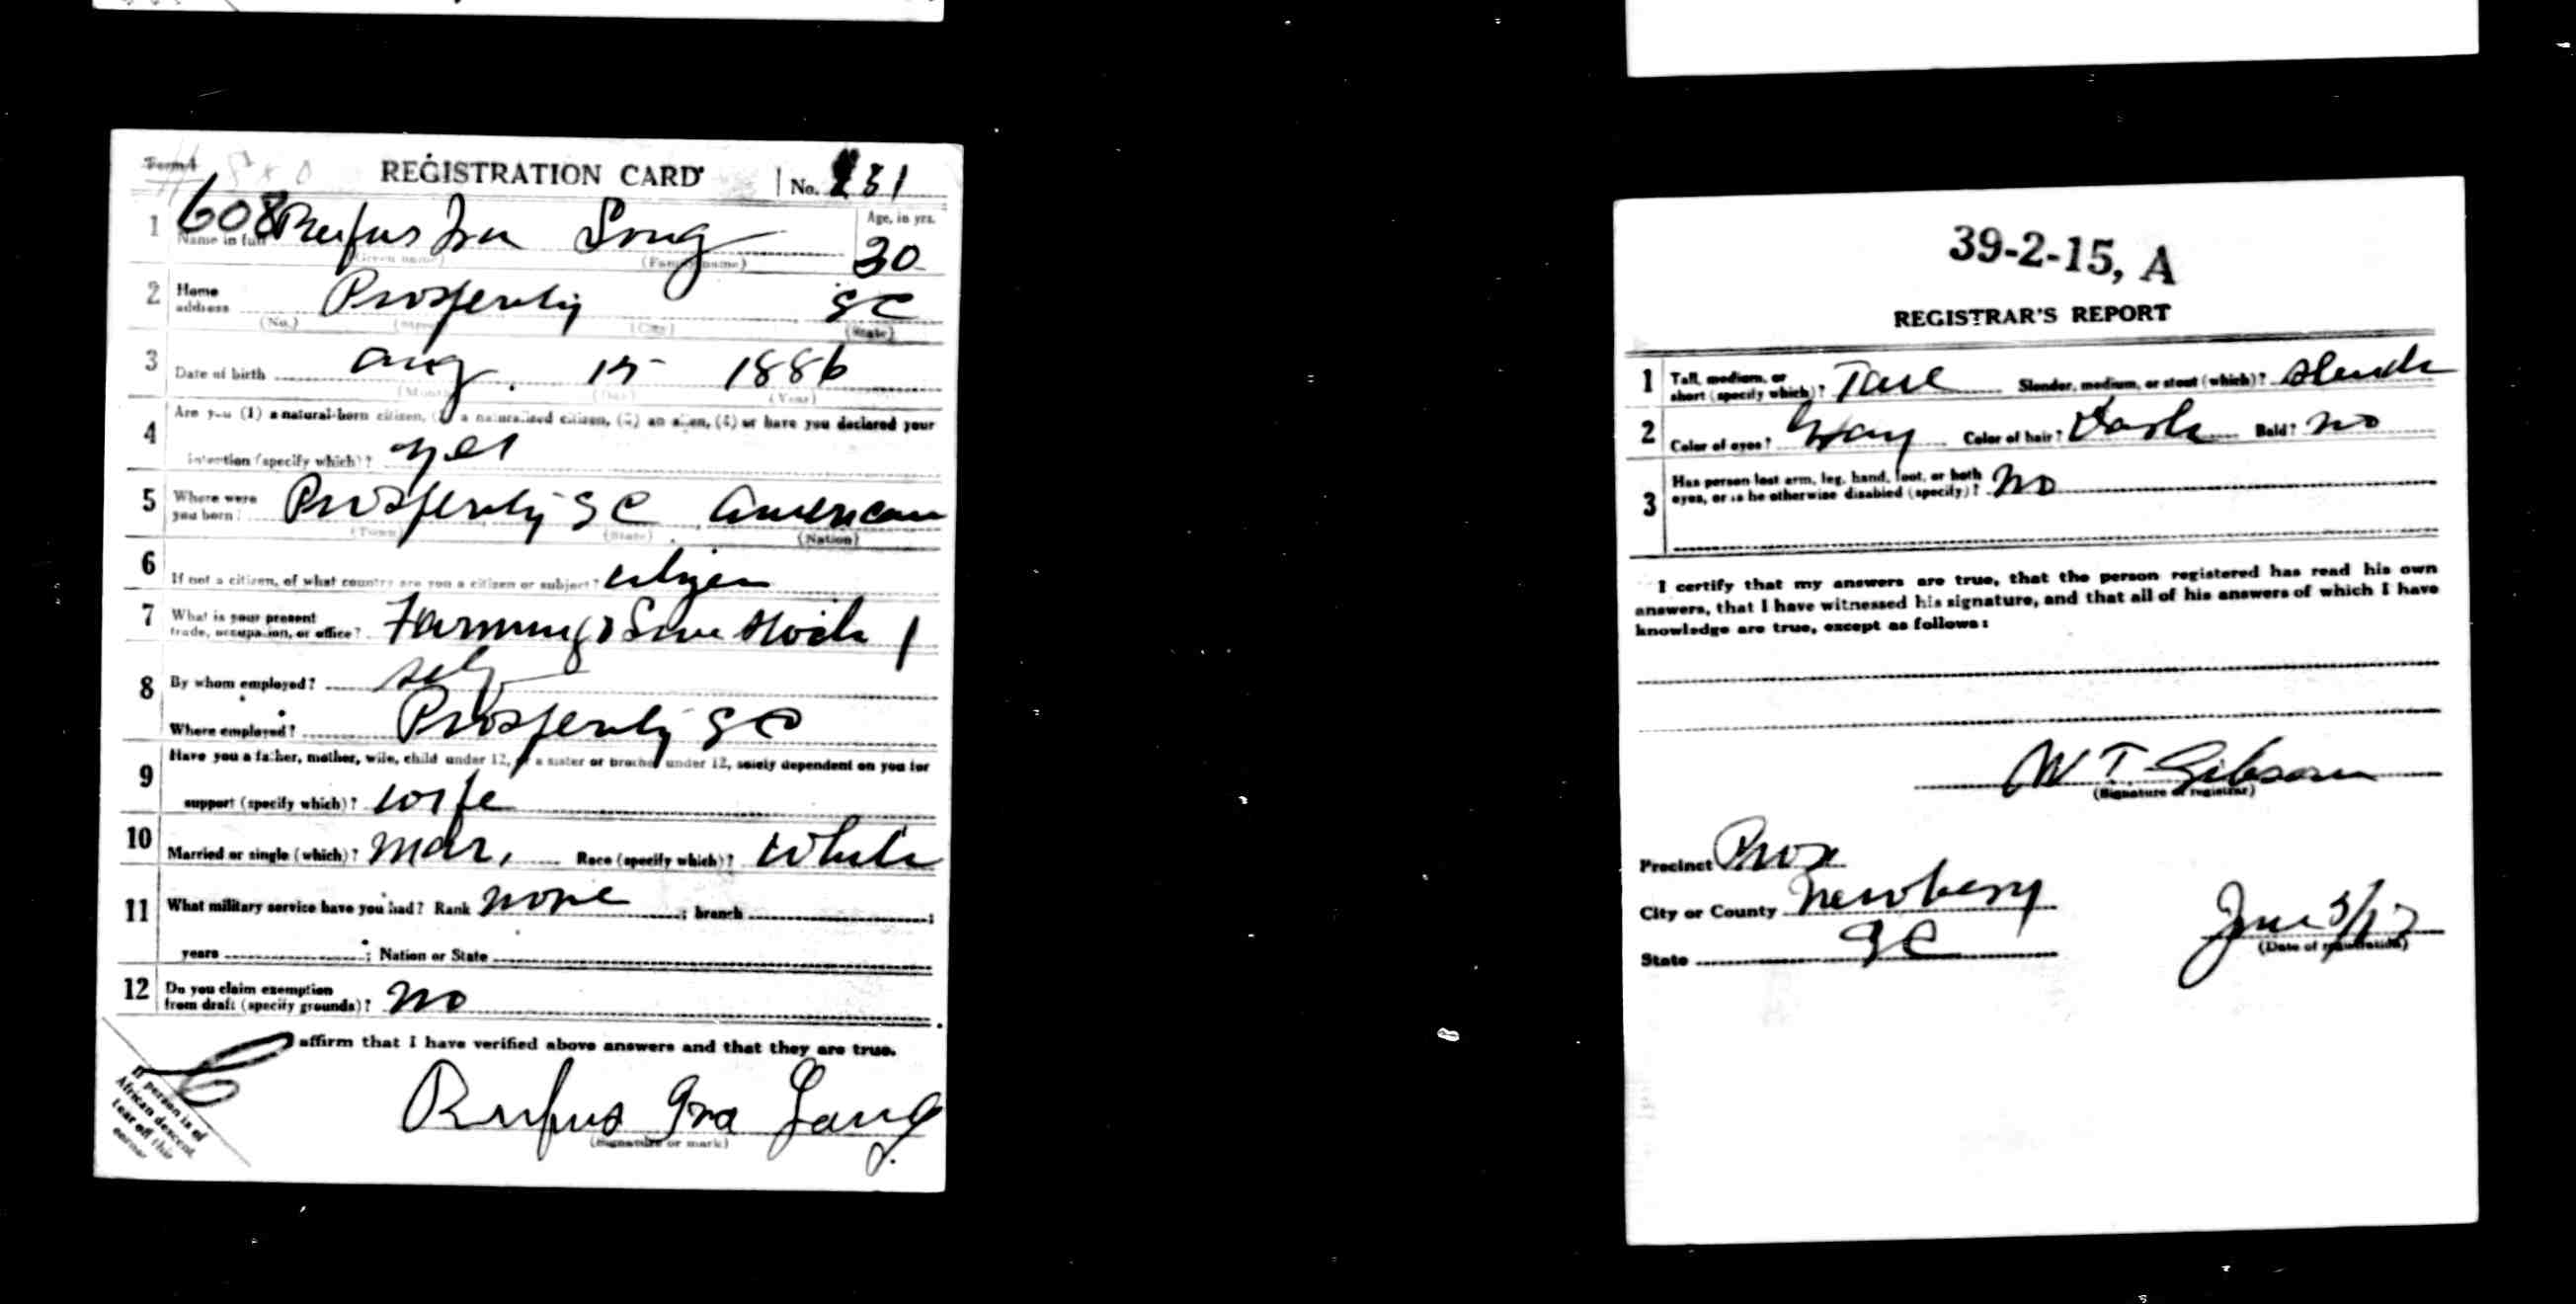 Form 1 REGISTRATION CARD No. 231
608
1 Name in full Rufus Ira Long Age, in yrs. 30
(Given name) (Family name)
2 Home address Prosperity SC
(No.) (Street) (City) (State)
3 Date of birth Aug. 15 1886
(Month) (Day) (Year)
4 Are you (1) a natural-born citizen, (2) a naturalized citizen, (3) an alien, (4) or have you declared your
intention (specify which)? yes
5 Where were you born? Prosperity SC American
(Town) (State) (Nation)
6 If not a citizen, of what country are you a citizen or subject? citizen
7 What is your present trade, occupation, or office? Farming & Live Stock 1
8 By whom employed? self
Where employed? Prosperity SC
9 Have you a father, mother, wife, child under 12, or a sister or brother under 12, solely dependent on you for
support (specify which)? wife
10 Married or single (which)? mar, Race (specify which)? White
11 What military service have you had? Rank none ; branch ;
years ; Nation or State
12 Do you claim exemption from draft (specify grounds)? no
affirm that I have verified above answers and that they are true.
Rufus Ira Long
(Signature or mark)
If person is of
African descent,
tear off this
corner
39-2-15, A
REGISTRAR'S REPORT
1 Tall, medium, or short (specify which)? Tall Slender, medium, or stout (which)? Slender
2 Color of eyes? Gray Color of hair? Dark Bald? no
3 Has person lost arm, leg, hand, foot, or both
eyes, or is he otherwise disabled (specify)? no
I certify that my answers are true, that the person registered has read his own
answers, that I have witnessed his signature, and that all of his answers of which I have
knowledge are true, except as follows:
W T Gibson
(Signature of registrar)
Precinct Pros
City or County Newberry
State SC June 5/17
(Date of registration)